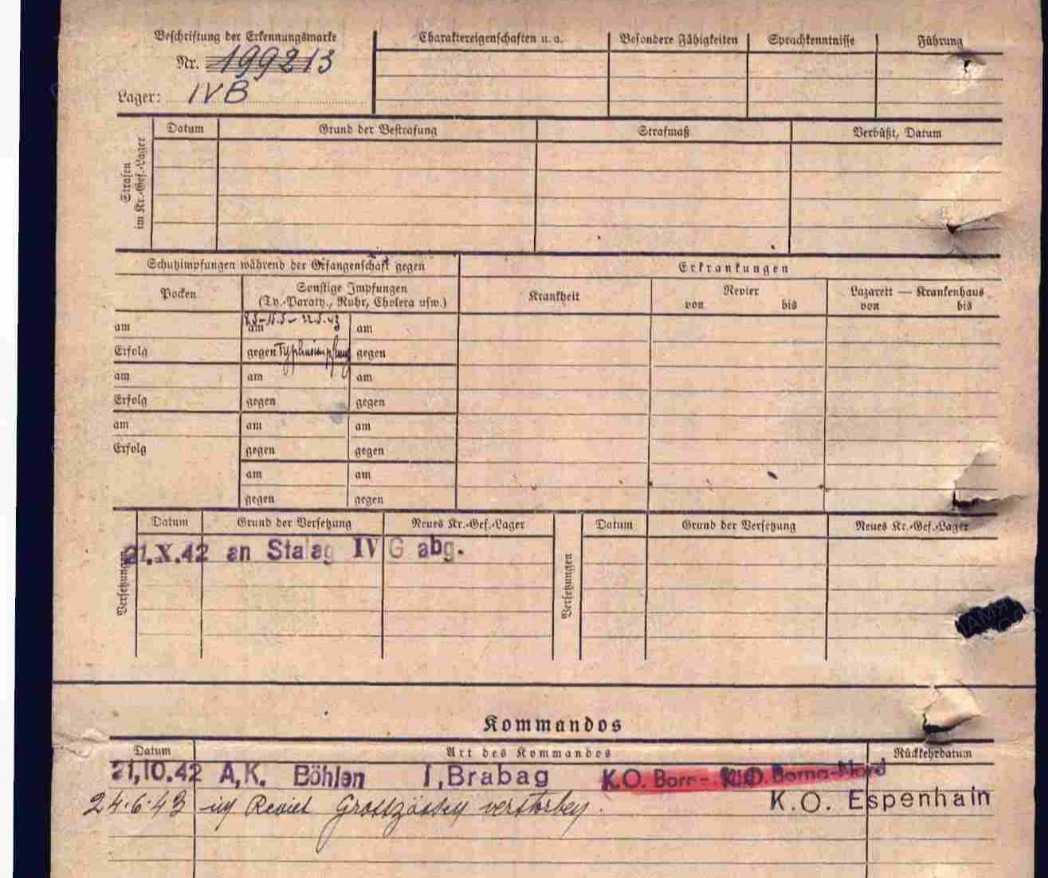 Beschriftung der Erkennungsmarke
Nr. 199213
Lager: IVB
Charaktereigenschaften u. a.
Besondere Fähigkeiten
Sprachkenntnisse
Führung
Strafen im Kr.-Gef.-Lager
Datum
Grund der Bestrafung
Strafmaß
Verbüßt, Datum
Schutzimpfungen während der Gefangenschaft gegen
Erkrankungen
Pocken
Sonstige Impfungen
(Ty.-Paraty., Ruhr, Cholera usw.)
Krankheit
Revier
von bis
Lazarett — Krankenhaus
von bis
am am am
Erfolg gegen gegen
am am am
Erfolg gegen gegen
am am am
Erfolg gegen gegen
am am
gegen gegen
Versetzungen
Datum
Grund der Versetzung
Neues Kr.-Gef.-Lager
Versetzungen
Datum
Grund der Versetzung
Neues Kr.-Gef.-Lager
21.X.42 an Stalag IV G abg.
Kommandos
Datum
Art des Kommandos
Rückkehrdatum
21,10.42 A,K. Böhlen I,Brabag K.O. Born- K.O. Borna-Nord
24.6.43 im Revier verstorben. K.O. Espenhain